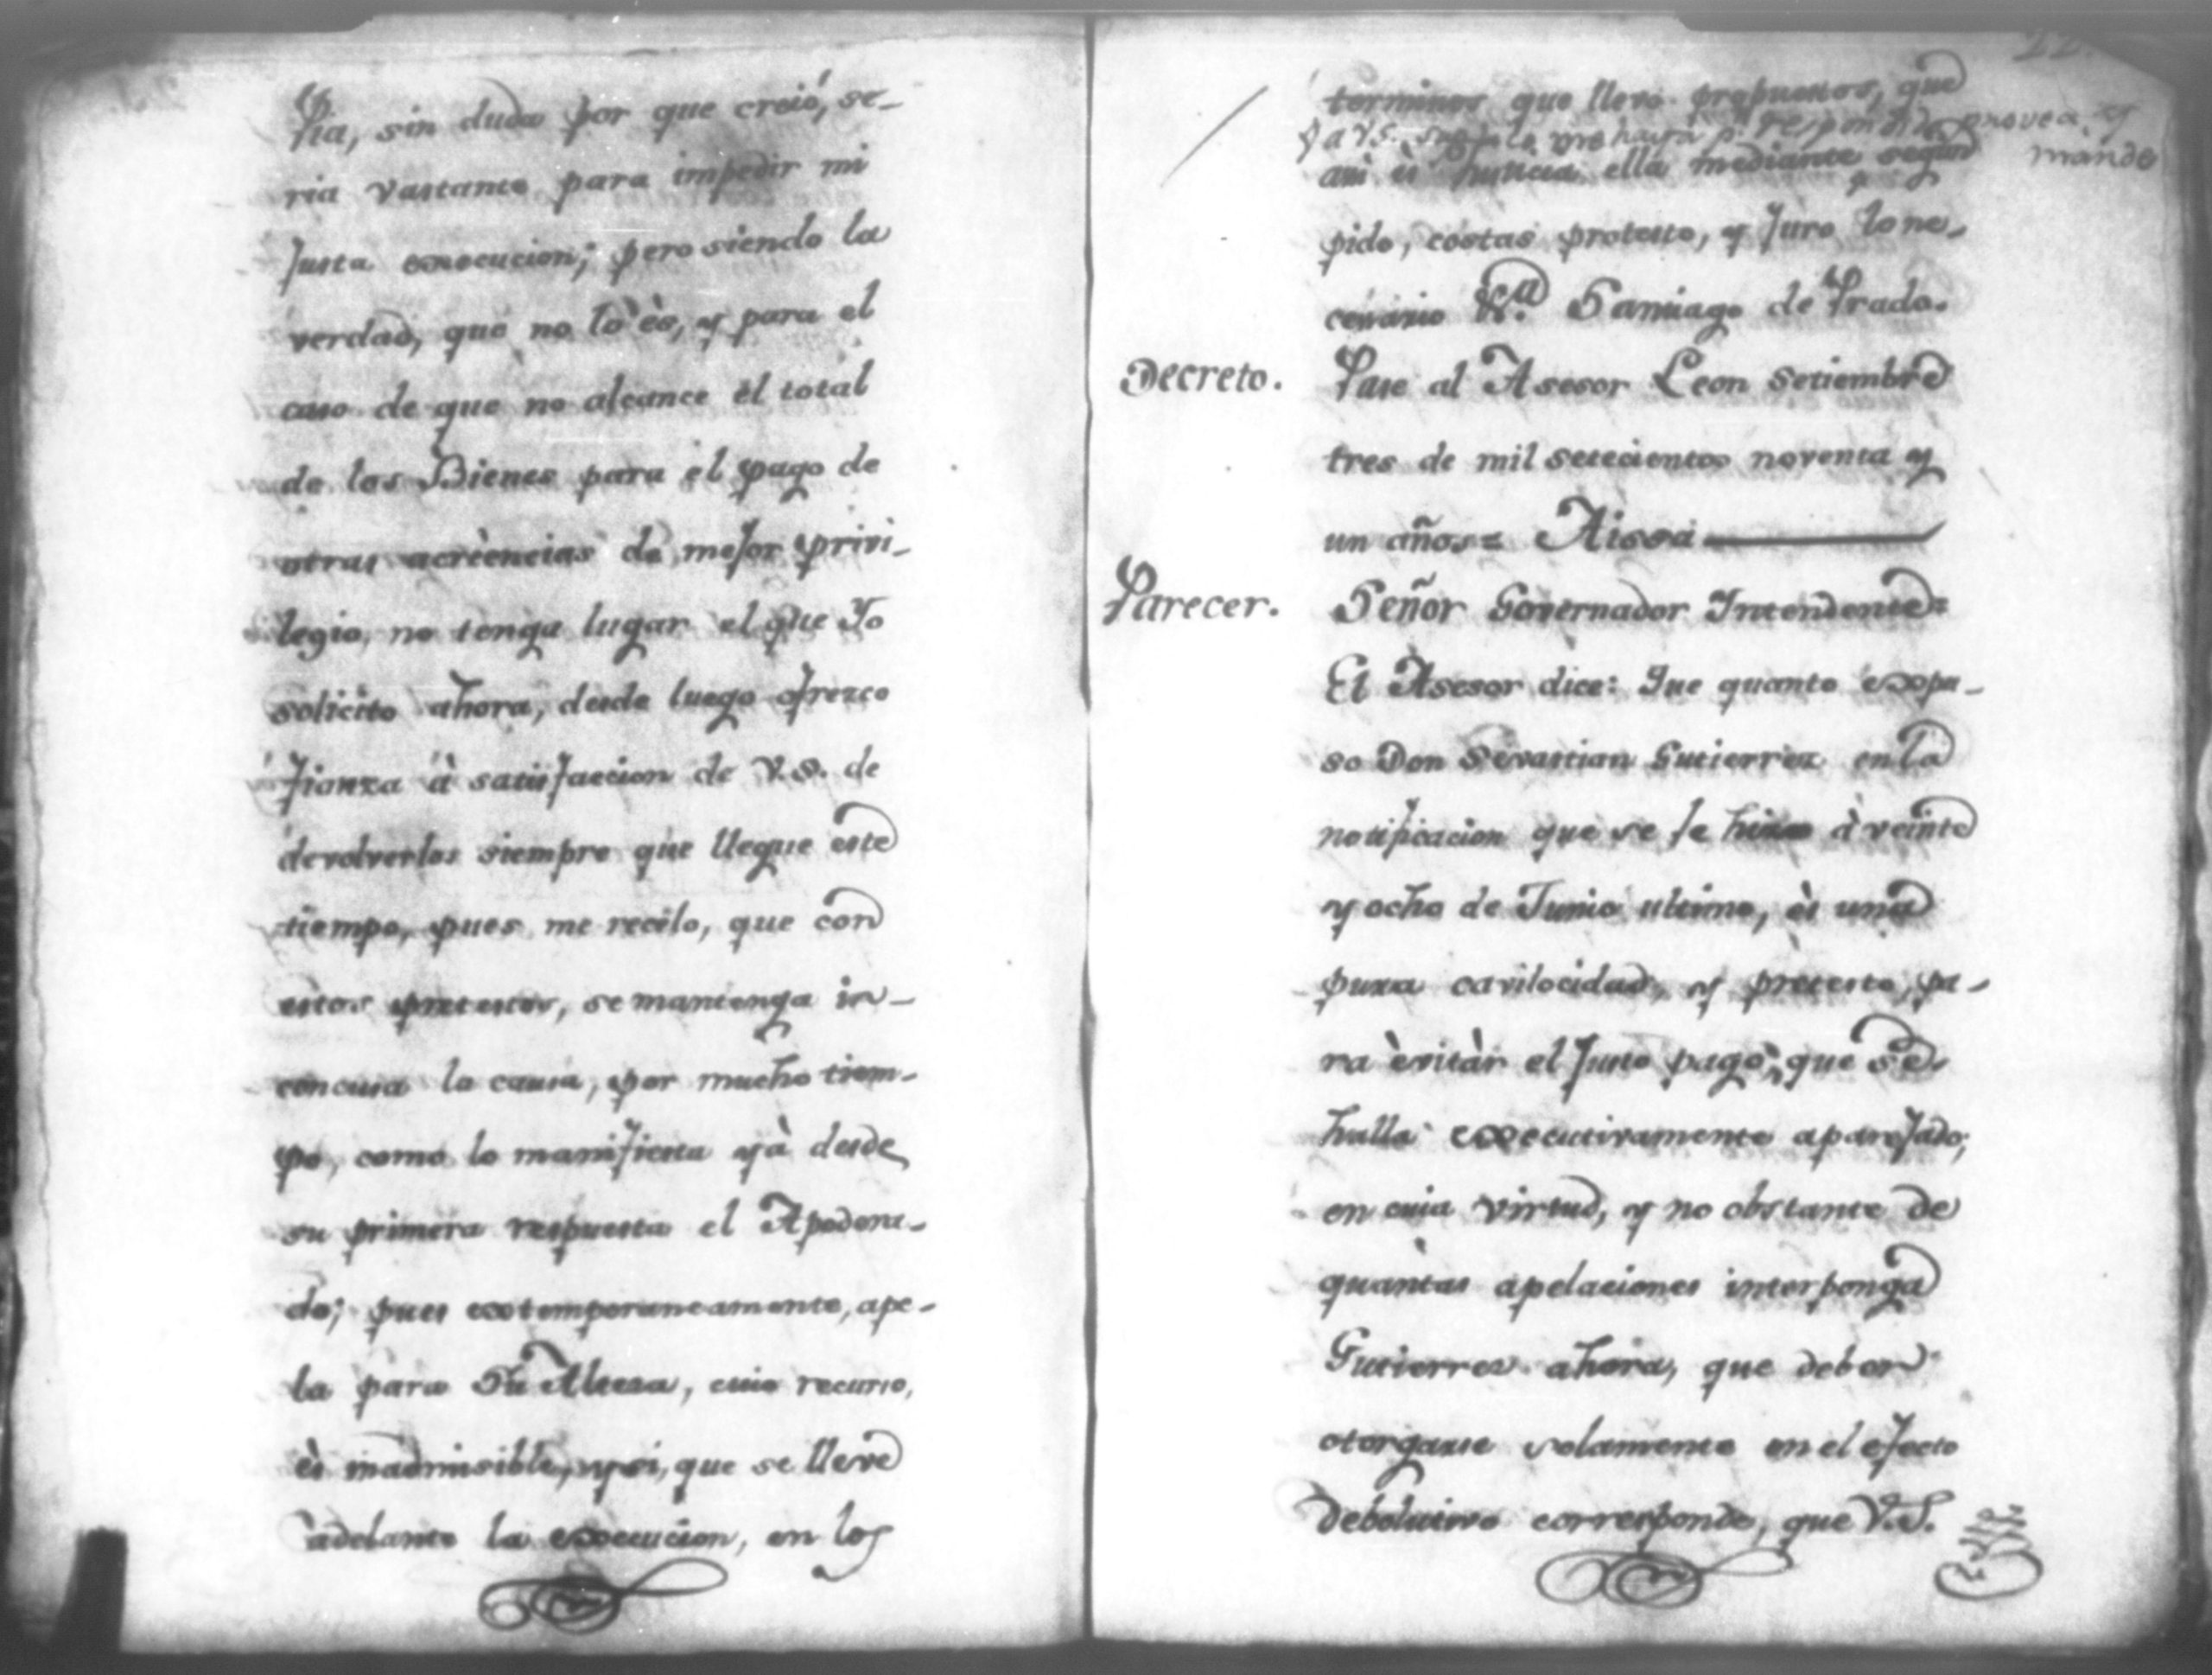 Pia, sin duda por que creió, se_
ria vastante para impedir mi
Justa execucion; pero siendo la
verdad, que no lo ès, y para el
caso de que no alcance èl total
de los Bienes para el pago de
otras acrèencias de meJor privi_
legio, no tenga lugar el que Yo
solicito ahora, desde luego ofrezco
fianza à satisfaccion de V.S. de
devolverlos siempre que llegue este
tiempo, pues me recèlo, que con
estos pretestos, se mantenga in_
conclusa la causa, por mucho tiem_
po, como lo manifiesta yà desde
su primera respuesta el Apodera_
do; pues extemporaneamente, ape_
la para Su Alteza, cuio recurso,
ès inadmisible, y si, que se lleve
adelante la execucion, en los
22.
terminos que llevo propuestos, que
a V.S. suplico me haya pr. respondido provea, y
mande
asi ès Justicia, ella mediante segun
pido, costas protesto, y Juro lo ne_
cesario Va. Santiago de Prado.
Decreto. Pase al Asesor Leon Setiembre
tres de mil setecientos noventa y
un años = Aissa
Parecer. Señor Governador Intendente =
El Asesor dice: Que quanto expu_
so Don Sevastian Gutierrez en la
notificacion que se le hizo à veinte
y ocho de Junio ultimo, ès una
pura cavilocidad, y pretesto, pa_
ra èvitàr el Justo pago, que se
halla executivamente apareJado;
en cuia virtud, y no obstante de
quàntas apelaciones interponga
Gutierrez ahora, que deben
otorgarse solamente en el efecto
debolutivo corresponde, que V.S.